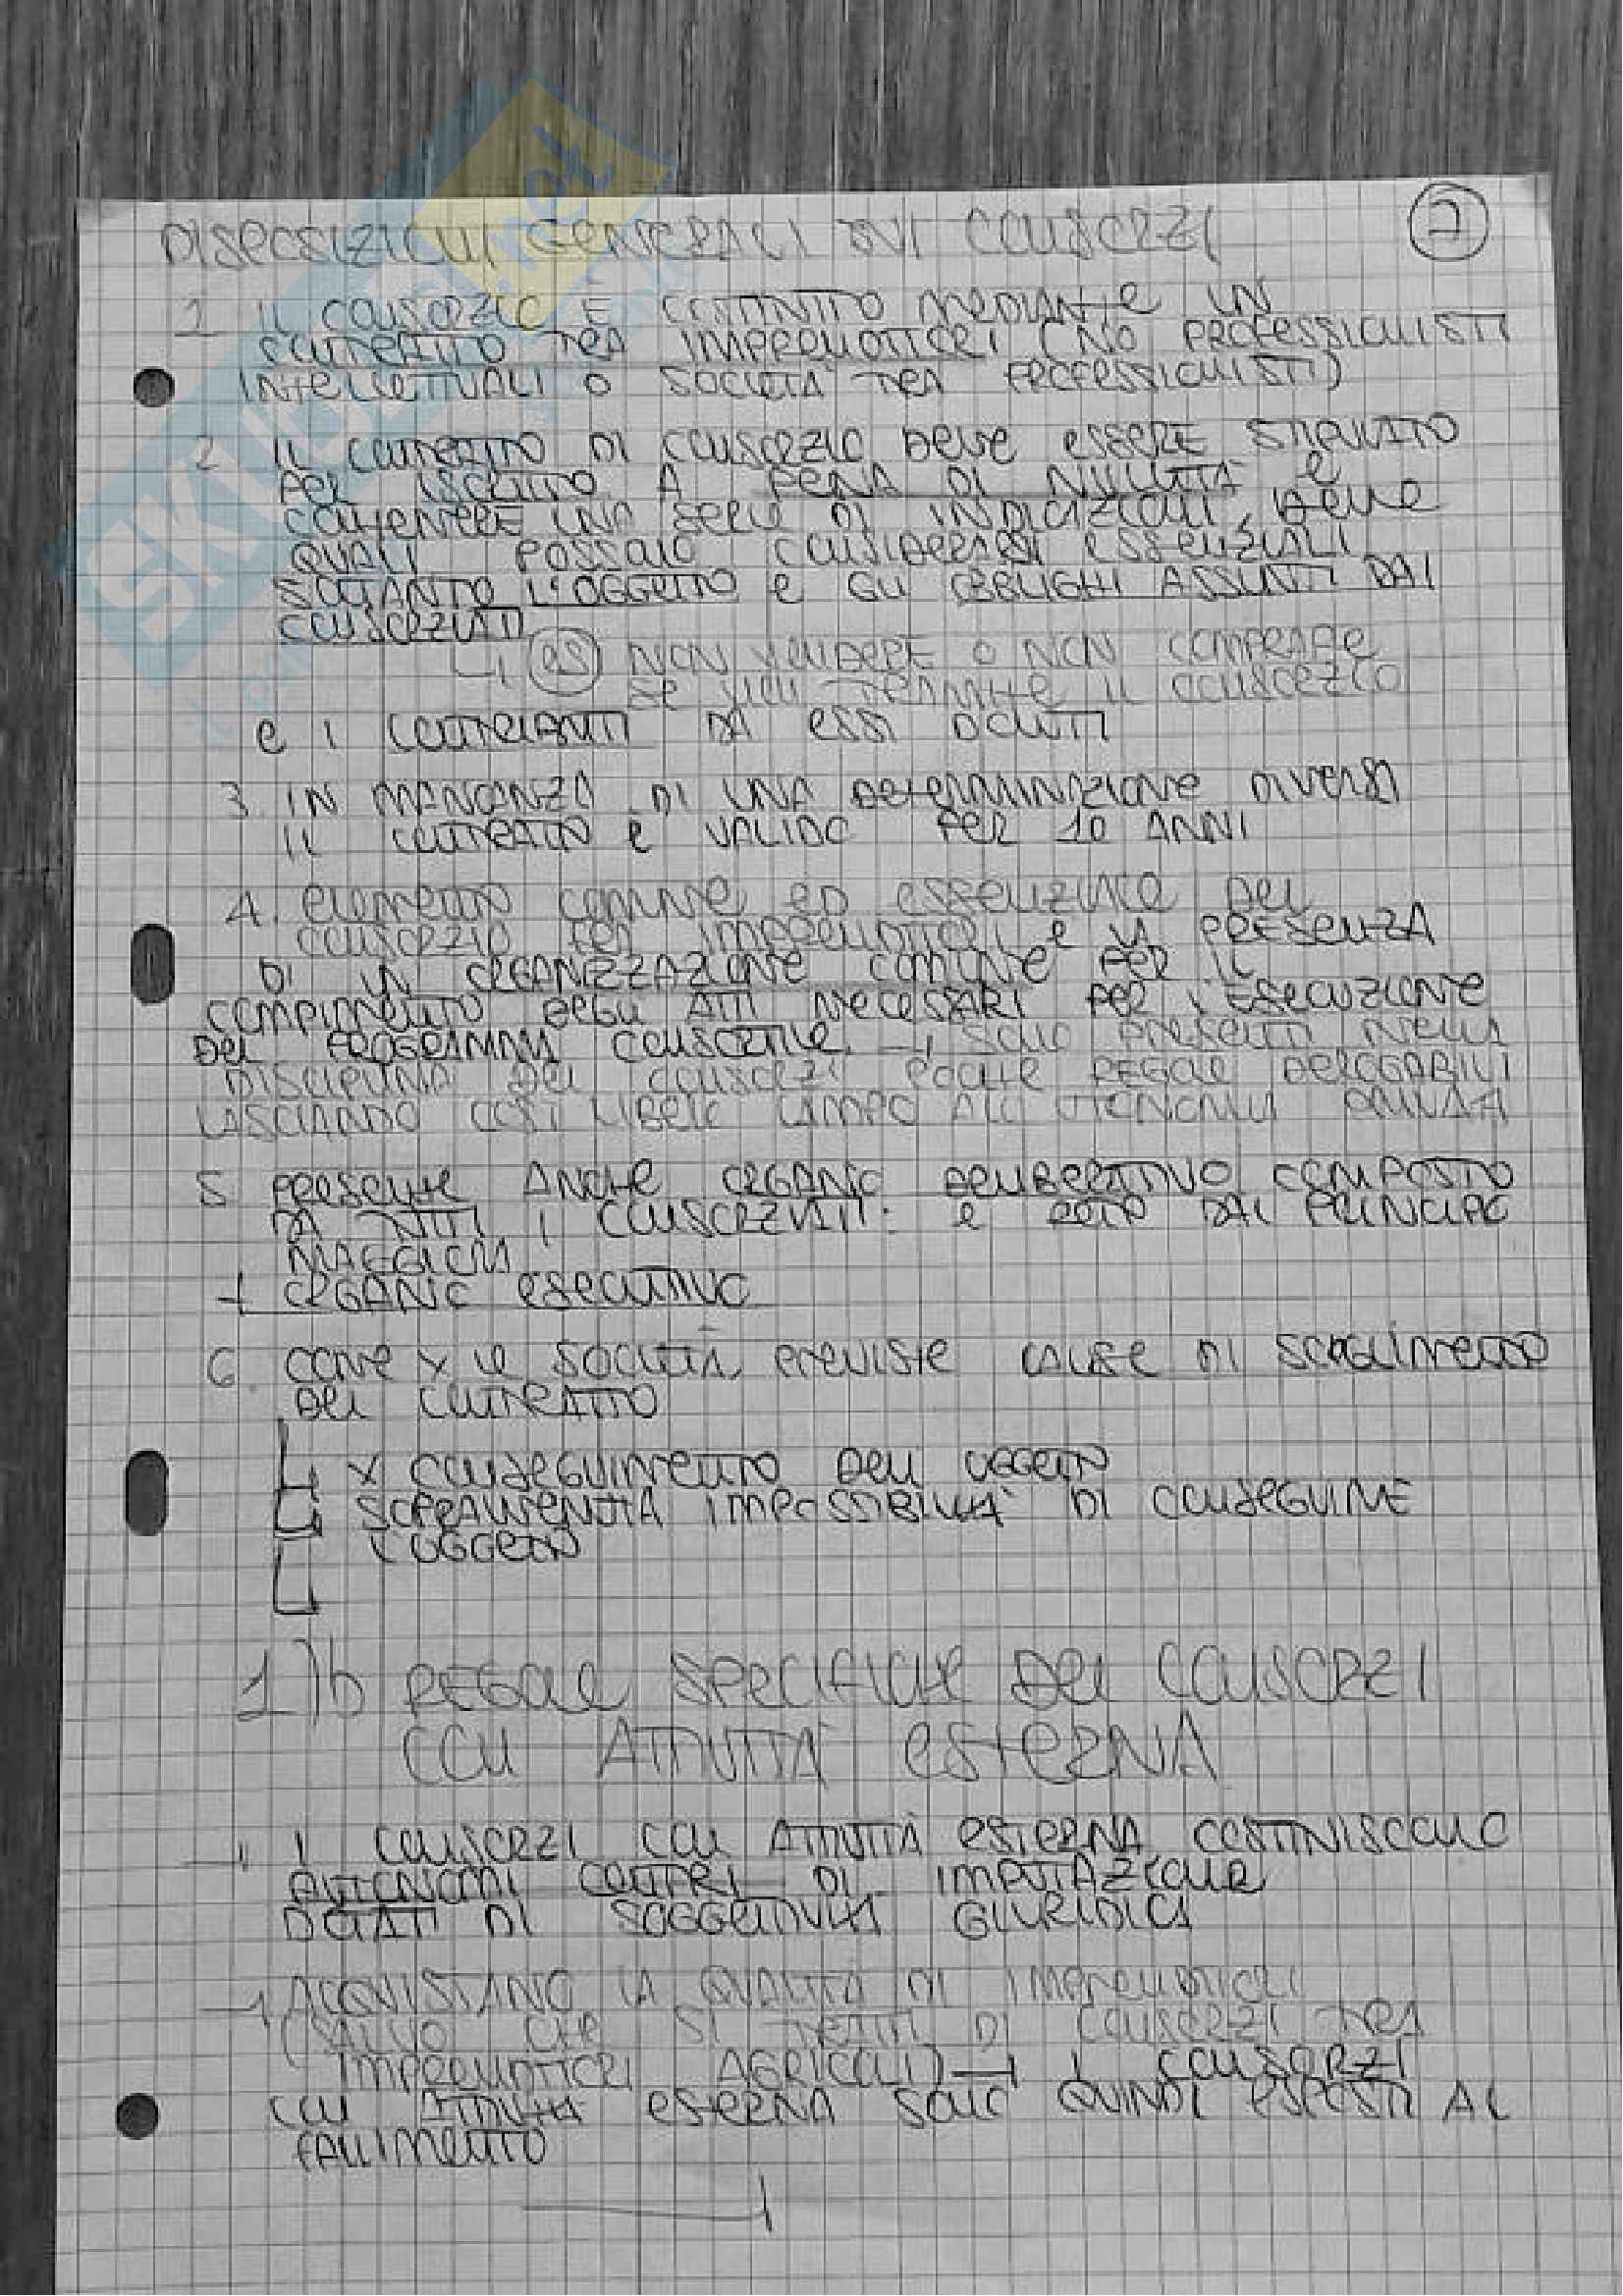 DISPOSIZIONI GENERALI SUI CONSORZI
7
1 IL CONSORZIO È COSTITUITO MEDIANTE UN
CONTRATTO TRA IMPRENDITORI (NO PROFESSIONISTI
INTELLETTUALI O SOCIETÀ TRA PROFESSIONISTI)
2 IL CONTRATTO DI CONSORZIO DEVE ESSERE STIPULATO
PER ISCRITTO A PENA DI NULLITÀ E
CONTENERE UNA SERIE DI INDICAZIONI, DELLE
QUALI POSSONO CONSIDERARSI ESSENZIALI
SOLTANTO L'OGGETTO E GLI OBBLIGHI ASSUNTI DAI
CONSORZIATI
↳ (ES) NON VENDERE O NON COMPRARE
SE NON TRAMITE IL CONSORZIO
E I CONTRIBUTI DA ESSI DOVUTI
3. IN MANCANZA DI UNA DETERMINAZIONE DIVERSA
IL CONTRATTO È VALIDO PER 10 ANNI
4. ELEMENTO COMUNE ED ESSENZIALE DEL
CONSORZIO TRA IMPRENDITORI È LA PRESENZA
DI UN ORGANIZZAZIONE COMUNE PER IL
COMPIMENTO DEGLI ATTI NECESSARI PER L'ESECUZIONE
DEL PROGRAMMA CONSORTILE → SONO PRESENTI NELLA
DISCIPLINA DEI CONSORZI POCHE REGOLE DEROGABILI
LASCIANDO COSÌ LIBERO CAMPO ALL'AUTONOMIA PRIVATA
5 PRESENTE ANCHE ORGANO DELIBERATIVO COMPOSTO
DA TUTTI I CONSORZIATI: È RETTO DAL PRINCIPIO
MAGGIORI
+ ORGANO ESECUTIVO
6 COME X LE SOCIETÀ, PREVISTE CAUSE DI SCIOGLIMENTO
DEL CONTRATTO
↳ X CONSEGUIMENTO DELL'OGGETTO
↳ SOPRAVVENUTA IMPOSSIBILITÀ DI CONSEGUIRE
L'OGGETTO
1)b REGOLE SPECIFICHE DEI CONSORZI
CON ATTIVITÀ ESTERNA
→ I CONSORZI CON ATTIVITÀ ESTERNA COSTITUISCONO
AUTONOMI CENTRI DI IMPUTAZIONE
DOTATI DI SOGGETTIVITÀ GIURIDICA
→ ACQUISTANO LA QUALITÀ DI IMPRENDITORI
(SALVO CHE SI TRATTI DI CONSORZI TRA
IMPRENDITORI AGRICOLI) → I CONSORZI
CON ATTIVITÀ ESTERNA SONO QUINDI ESPOSTI AL
FALLIMENTO